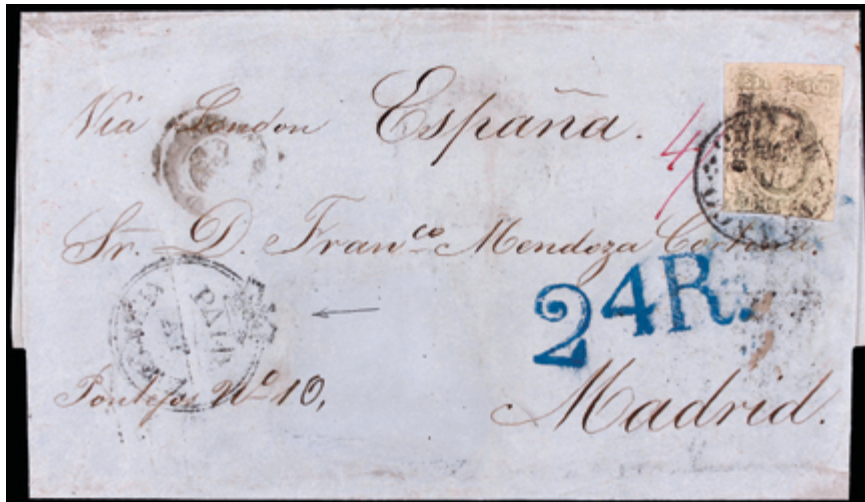 Via London España. 4/
Sr. D. Fran.co Mendoza Cortina.
24R.
PAID
Pontejos No 10,
Madrid.